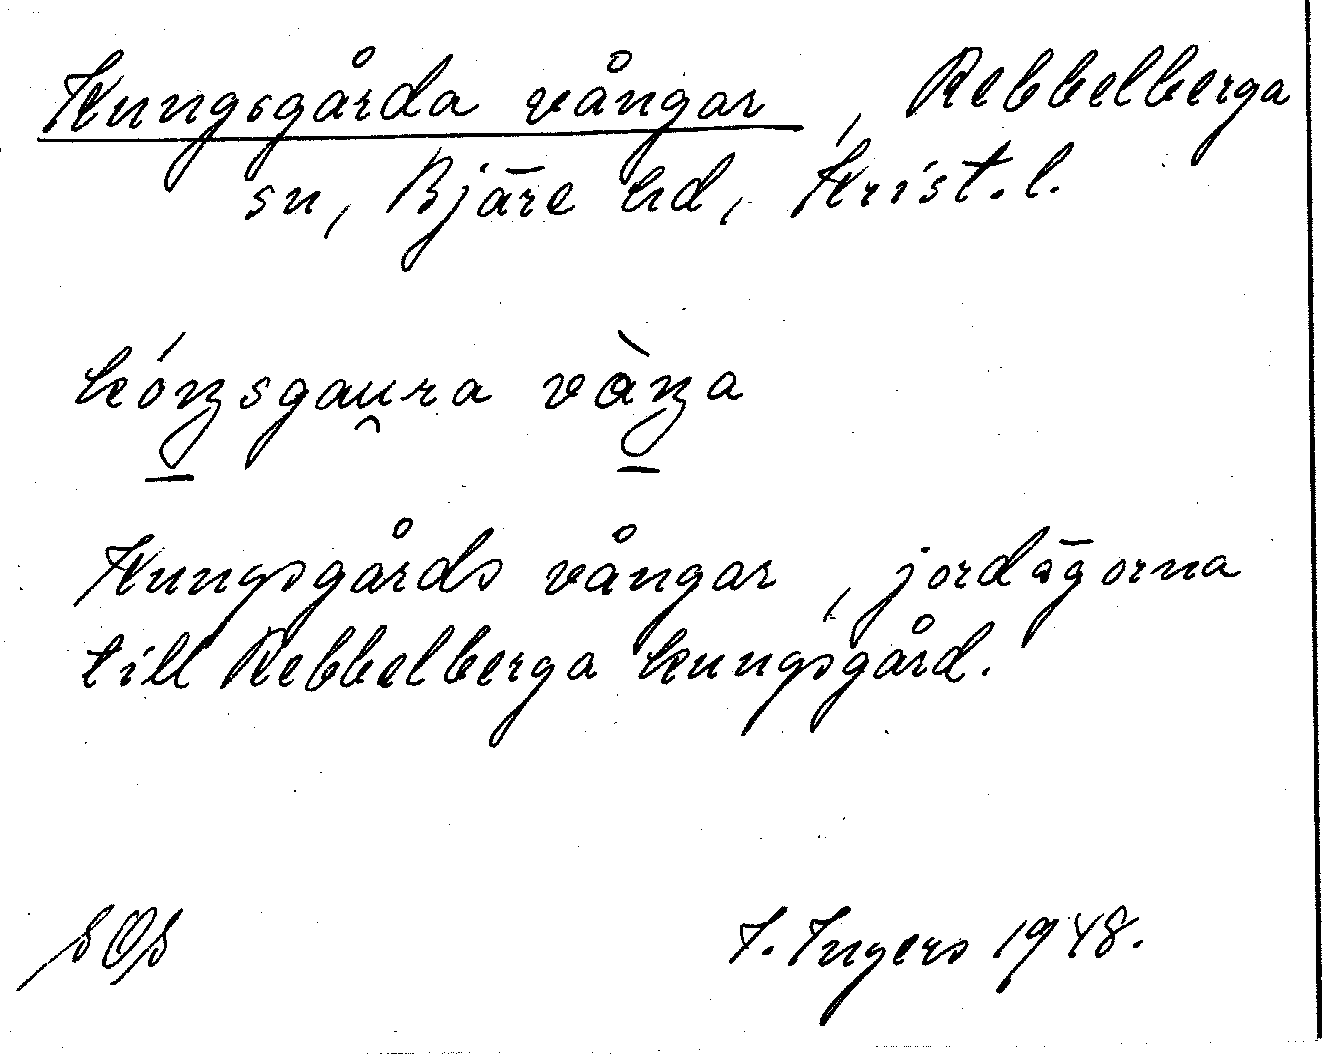 Kungsgårda vångar, Rebbelberga
sn, Bjäre hd, Krist. l.
kóŋsgau̯ra vàŋa
Kungsgårds vångar, jordägorna
till Rebbelberga kungsgård.
SOS I. Ingers 1948.